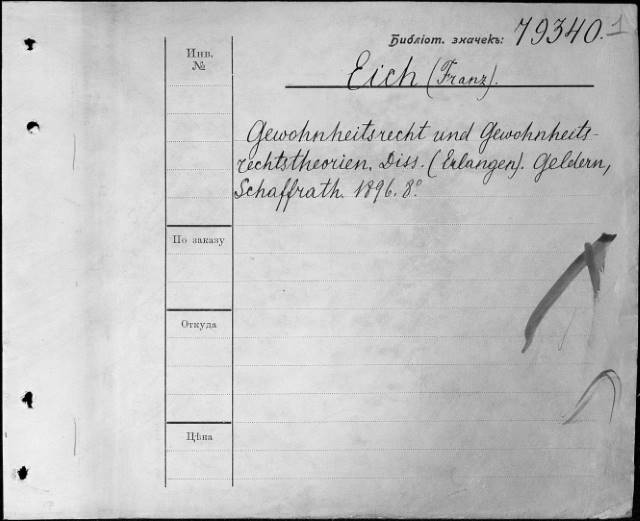 Библіот. значекъ: 79340. 1
Инв.
№
Eich (Franz).
Gewohnheitsrecht und Gewohnheits-
rechtstheorien. Diss. (Erlangen). Geldern,
Schaffrath. 1896. 8°.
По заказу
Откуда
Цѣна